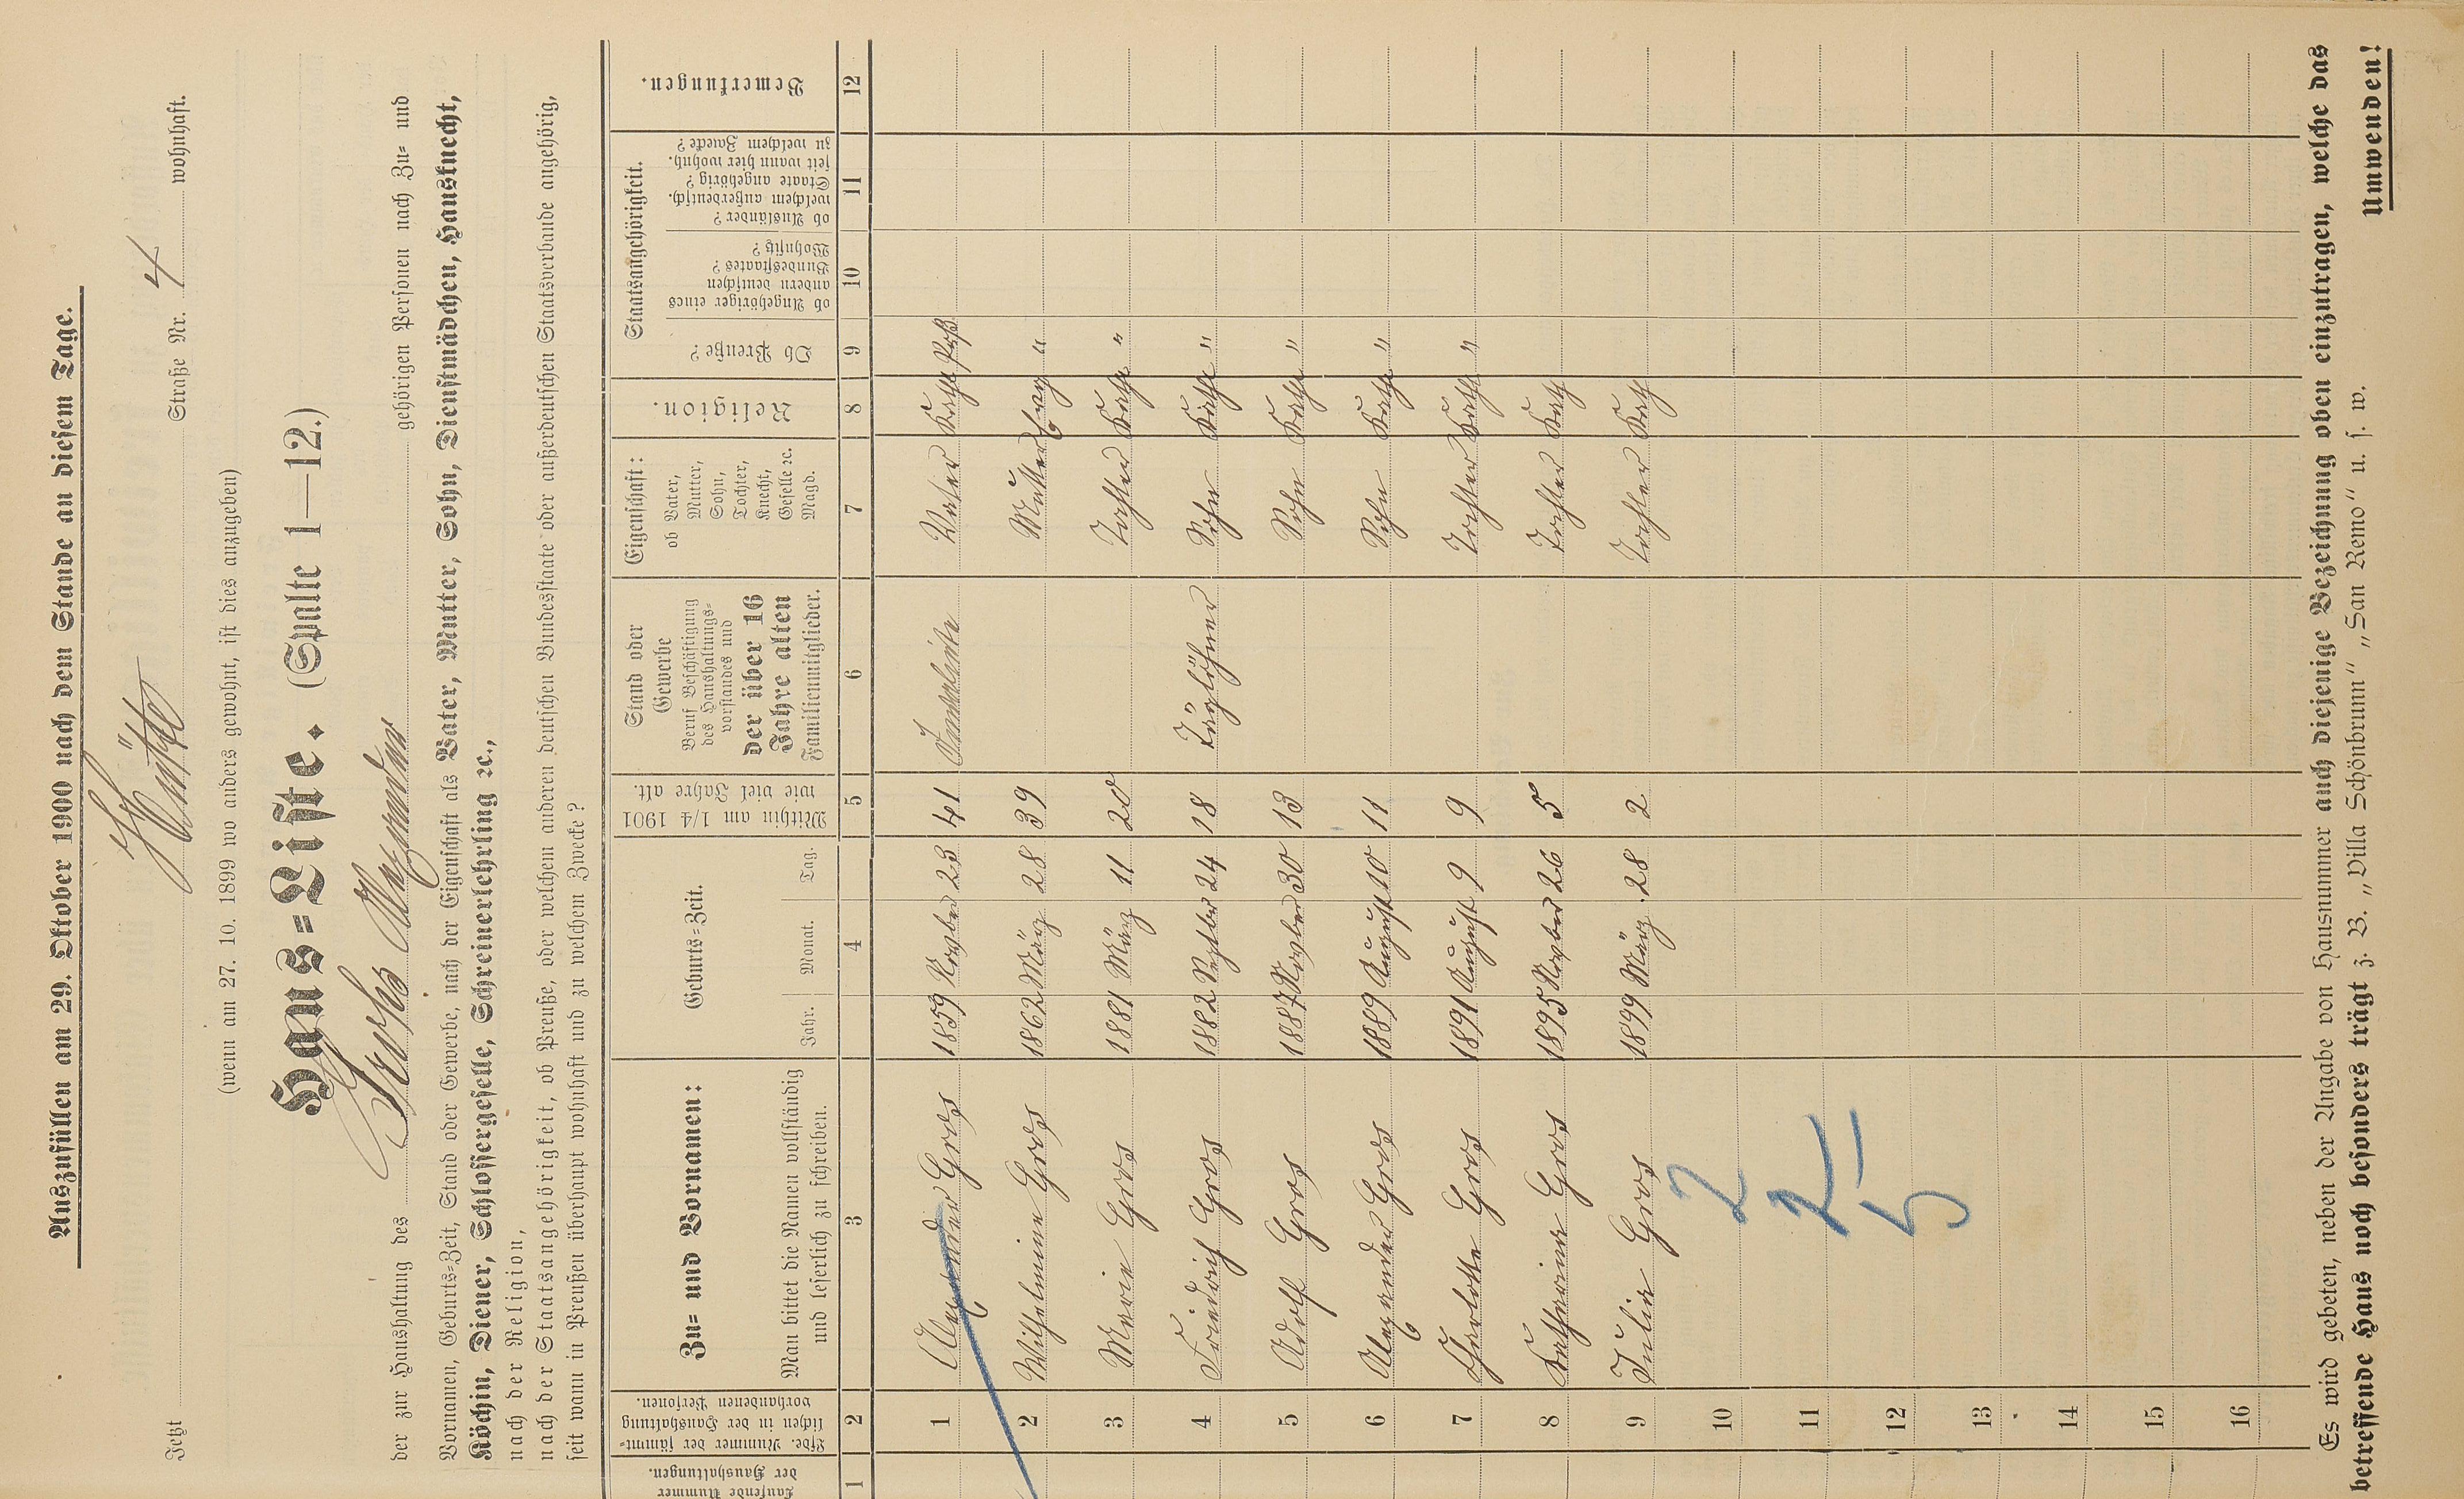 Auszufüllen am 29. Oktober 1900 nach dem Stande an diesem Tage.
Jetzt Hütte Straße Nr. 4 wohnhaft.
(wenn am 27. 10. 1899 wo anders gewohnt, ist dies anzugeben)
Haus=Liste. (Spalte 1—12.)
der zur Haushaltung des Alexander gehörigen Personen nach Zu= und
Vornamen, Geburts=Zeit, Stand oder Gewerbe, nach der Eigenschaft als Vater, Mutter, Sohn, Dienstmädchen, Hausknecht,
Köchin, Diener, Schlossergeselle, Schreinerlehrling ꝛc.,
nach der Religion,
nach der Staatsangehörigkeit, ob Preuße, oder welchem anderen deutschen Bundesstaate oder außerdeutschen Staatsverbande angehörig,
seit wann in Preußen überhaupt wohnhaft und zu welchem Zwecke?
Laufende Nummer
der Haushaltungen.
Lfde. Nummer der sämmt=
lichen in der Haushaltung
vorhandenen Personen.
Zu= und Vornamen:
Man bittet die Namen vollständig
und leserlich zu schreiben.
Geburts=Zeit.
Jahr. Monat. Tag.
Mithin am 1/4 1901
wie viel Jahre alt.
Stand oder
Gewerbe
Beruf Beschäftigung
des Haushaltungs=
vorstandes und
der über 16
Jahre alten
Familienmitglieder.
Eigenschaft:
ob Vater,
Mutter,
Sohn,
Tochter,
Knecht,
Geselle ꝛc.
Magd.
Religion.
Staatsangehörigkeit.
Ob Preuße?
ob Angehöriger eines
andern deutschen
Bundesstaates?
Wohnsitz?
ob Ausländer?
welchem außerdeutsch.
Staate angehörig?
seit wann hier wohnh.
zu welchem Zwecke?
Bemerkungen.
1 2 3 4 5 6 7 8 9 10 11 12
1 Alexander Gros 1859 Novbr 23 41 Invalide Vater Kath Prß
2 Wilhelmine Gros 1862 März 28 39 Mutter Evg "
3 Marie Gros 1881 März 11 20 Tochter Kath "
4 Friedrich Gros 1882 Septbr 24 18 Taglöhner Sohn Kath "
5 Adolf Gros 1887 Novber 30 13 Sohn Kath "
6 Alexander Gros 1889 August 10 11 Sohn Kath "
7 Charlotte Gros 1891 August 9 9 Tochter Kath "
8 Katharina Gros 1895 Novber 26 5 Tochter Kath
9 Julia Gros 1899 März 28 2 Tochter Kath
10 2
11 2
12 5
13
14
15
16
Es wird gebeten, neben der Angabe von Hausnummer auch diejenige Bezeichnung oben einzutragen, welche das
betreffende Haus noch besonders trägt z. B. „Villa Schönbrunn" „San Remo" u. s. w.
Umwenden!